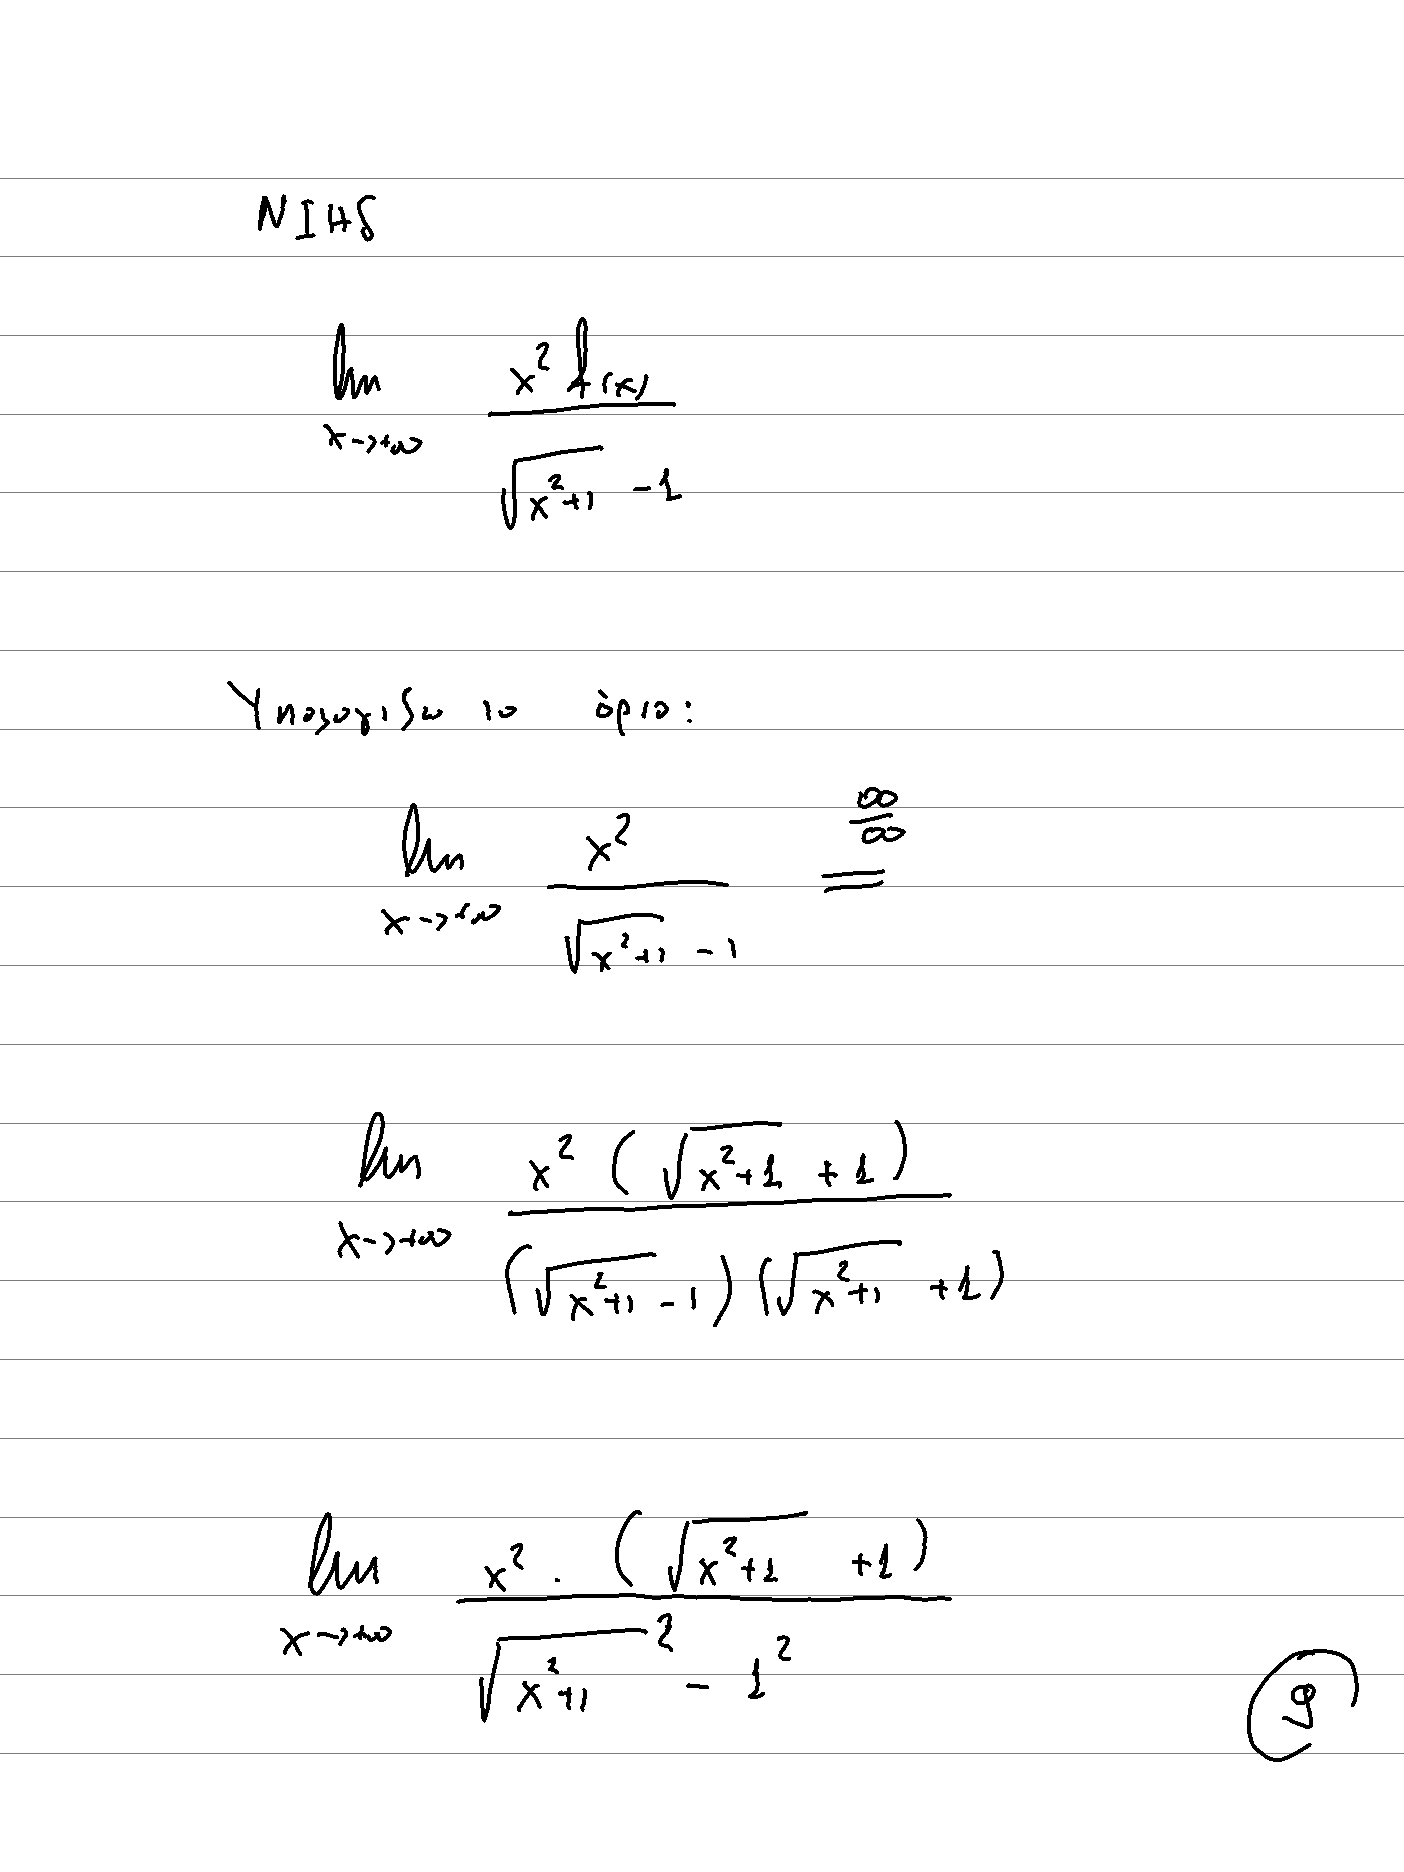 ΝΙΗδ
lim x→+∞ x² f(x) / (√(x²+1) - 1)
Υπολογιζω το όριο:
lim x→+∞ x² / (√(x²+1) - 1) = ∞/∞
lim x→+∞ x² (√(x²+1) + 1) / (√(x²+1) - 1) (√(x²+1) + 1)
lim x→+∞ x² · (√(x²+1) + 1) / √(x²+1)² - 1²
9